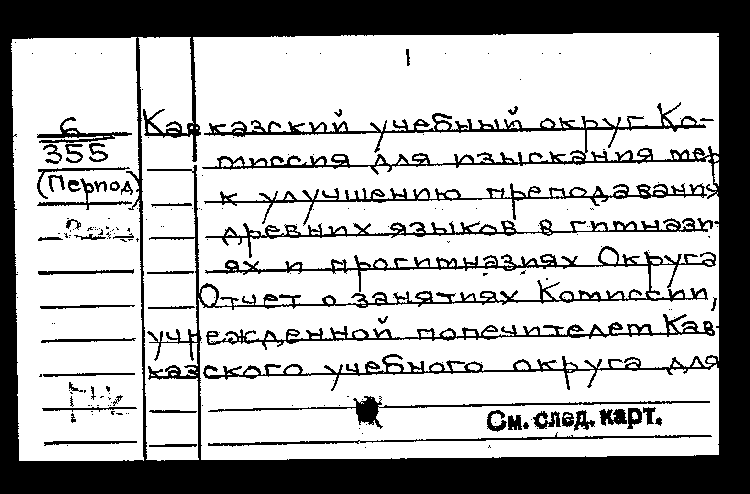 6
355
(Период)
Кавказский учебный округ Ко-
миссия для изыскания мер
к улучшению преподавания
древних языков в гимнази-
ях и прогимназиях Округа
Отчет о занятиях Комиссии,
учрежденной попечителем Кав-
казского учебного округа для
См. след. карт.